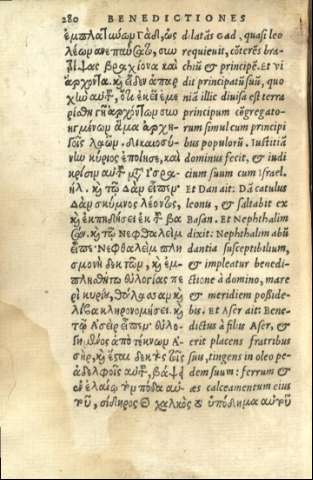 280 BENEDICTIONES
ἐμπλατιωῶν γὰδ, ὡς
λέων ἀνεπαύσατο, συν
τρίψας βραχίονα καὶ
ἄρχοντα. κὶ εἶδεν ἀπαρ
χὼ αὑτοῦ, ὅτι ἐκεῖ ἐμε
ρίσθη γῆ ἀρχόντων συν
ηγμένων ἅμα ἀρχη
γοῖς λαῶν. δικαιοσύ
νω κύριος ἐποίησε, καὶ
κρίσιν αὑτοῦ μετ' Ισρα
ήλ. κὶ τῷ Δὰν εἶπεν
Δὰν σκύμνος λέοντος,
κὶ ἐκπηδήσει ἐκ τοῦ βα
σάν. κὶ τῷ Νεφθαλεὶμ
εἶπε Νεφθαλεὶμ πλη
σμονὴ δεκτῶν, κὶ ἐμ-
πλησθήτω εὐλογίας πα
ρὰ κυρίου, θάλασσαν κὶ
λίβα κληρονομήσει. κὶ
τῷ Ασὴρ εἶπεν εὐλο-
γημένος ἀπὸ τέκνων Α-
σὴρ, κὶ ἔσται δεκτὸς τοῖς
ἀδελφοῖς αὑτοῦ, βάψει
ἐν ἐλαίῳ τὸν πόδα αὑ-
τοῦ, σίδηρος κὶ χαλκὸς τὸ ὑπόδημα αὑτοῦ
dilatās Gad, quasi leo
requieuit, cōterēs bra-
chiū & principē. Et vi
dit principatū suū, quo
niā illic diuisa est terra
principum cōgregato-
rum simul cum principi
bus populorū. Iustitiā
dominus fecit, & iudi
cium suum cum israel.
Et Dan ait: Dā catulus
leonis, & saltabit ex
Basan. Et Nephthalim
dixit: Nephthalim abū
dantia susceptibilium,
& impleatur benedi-
ctione à domino, mare
& meridiem posside-
bis. Et Aser ait: Bene-
dictus à filiis Aser, &
erit placens fratribus
suis, tingens in oleo pe-
dem suum: ferrum &
æs calceamentum eius